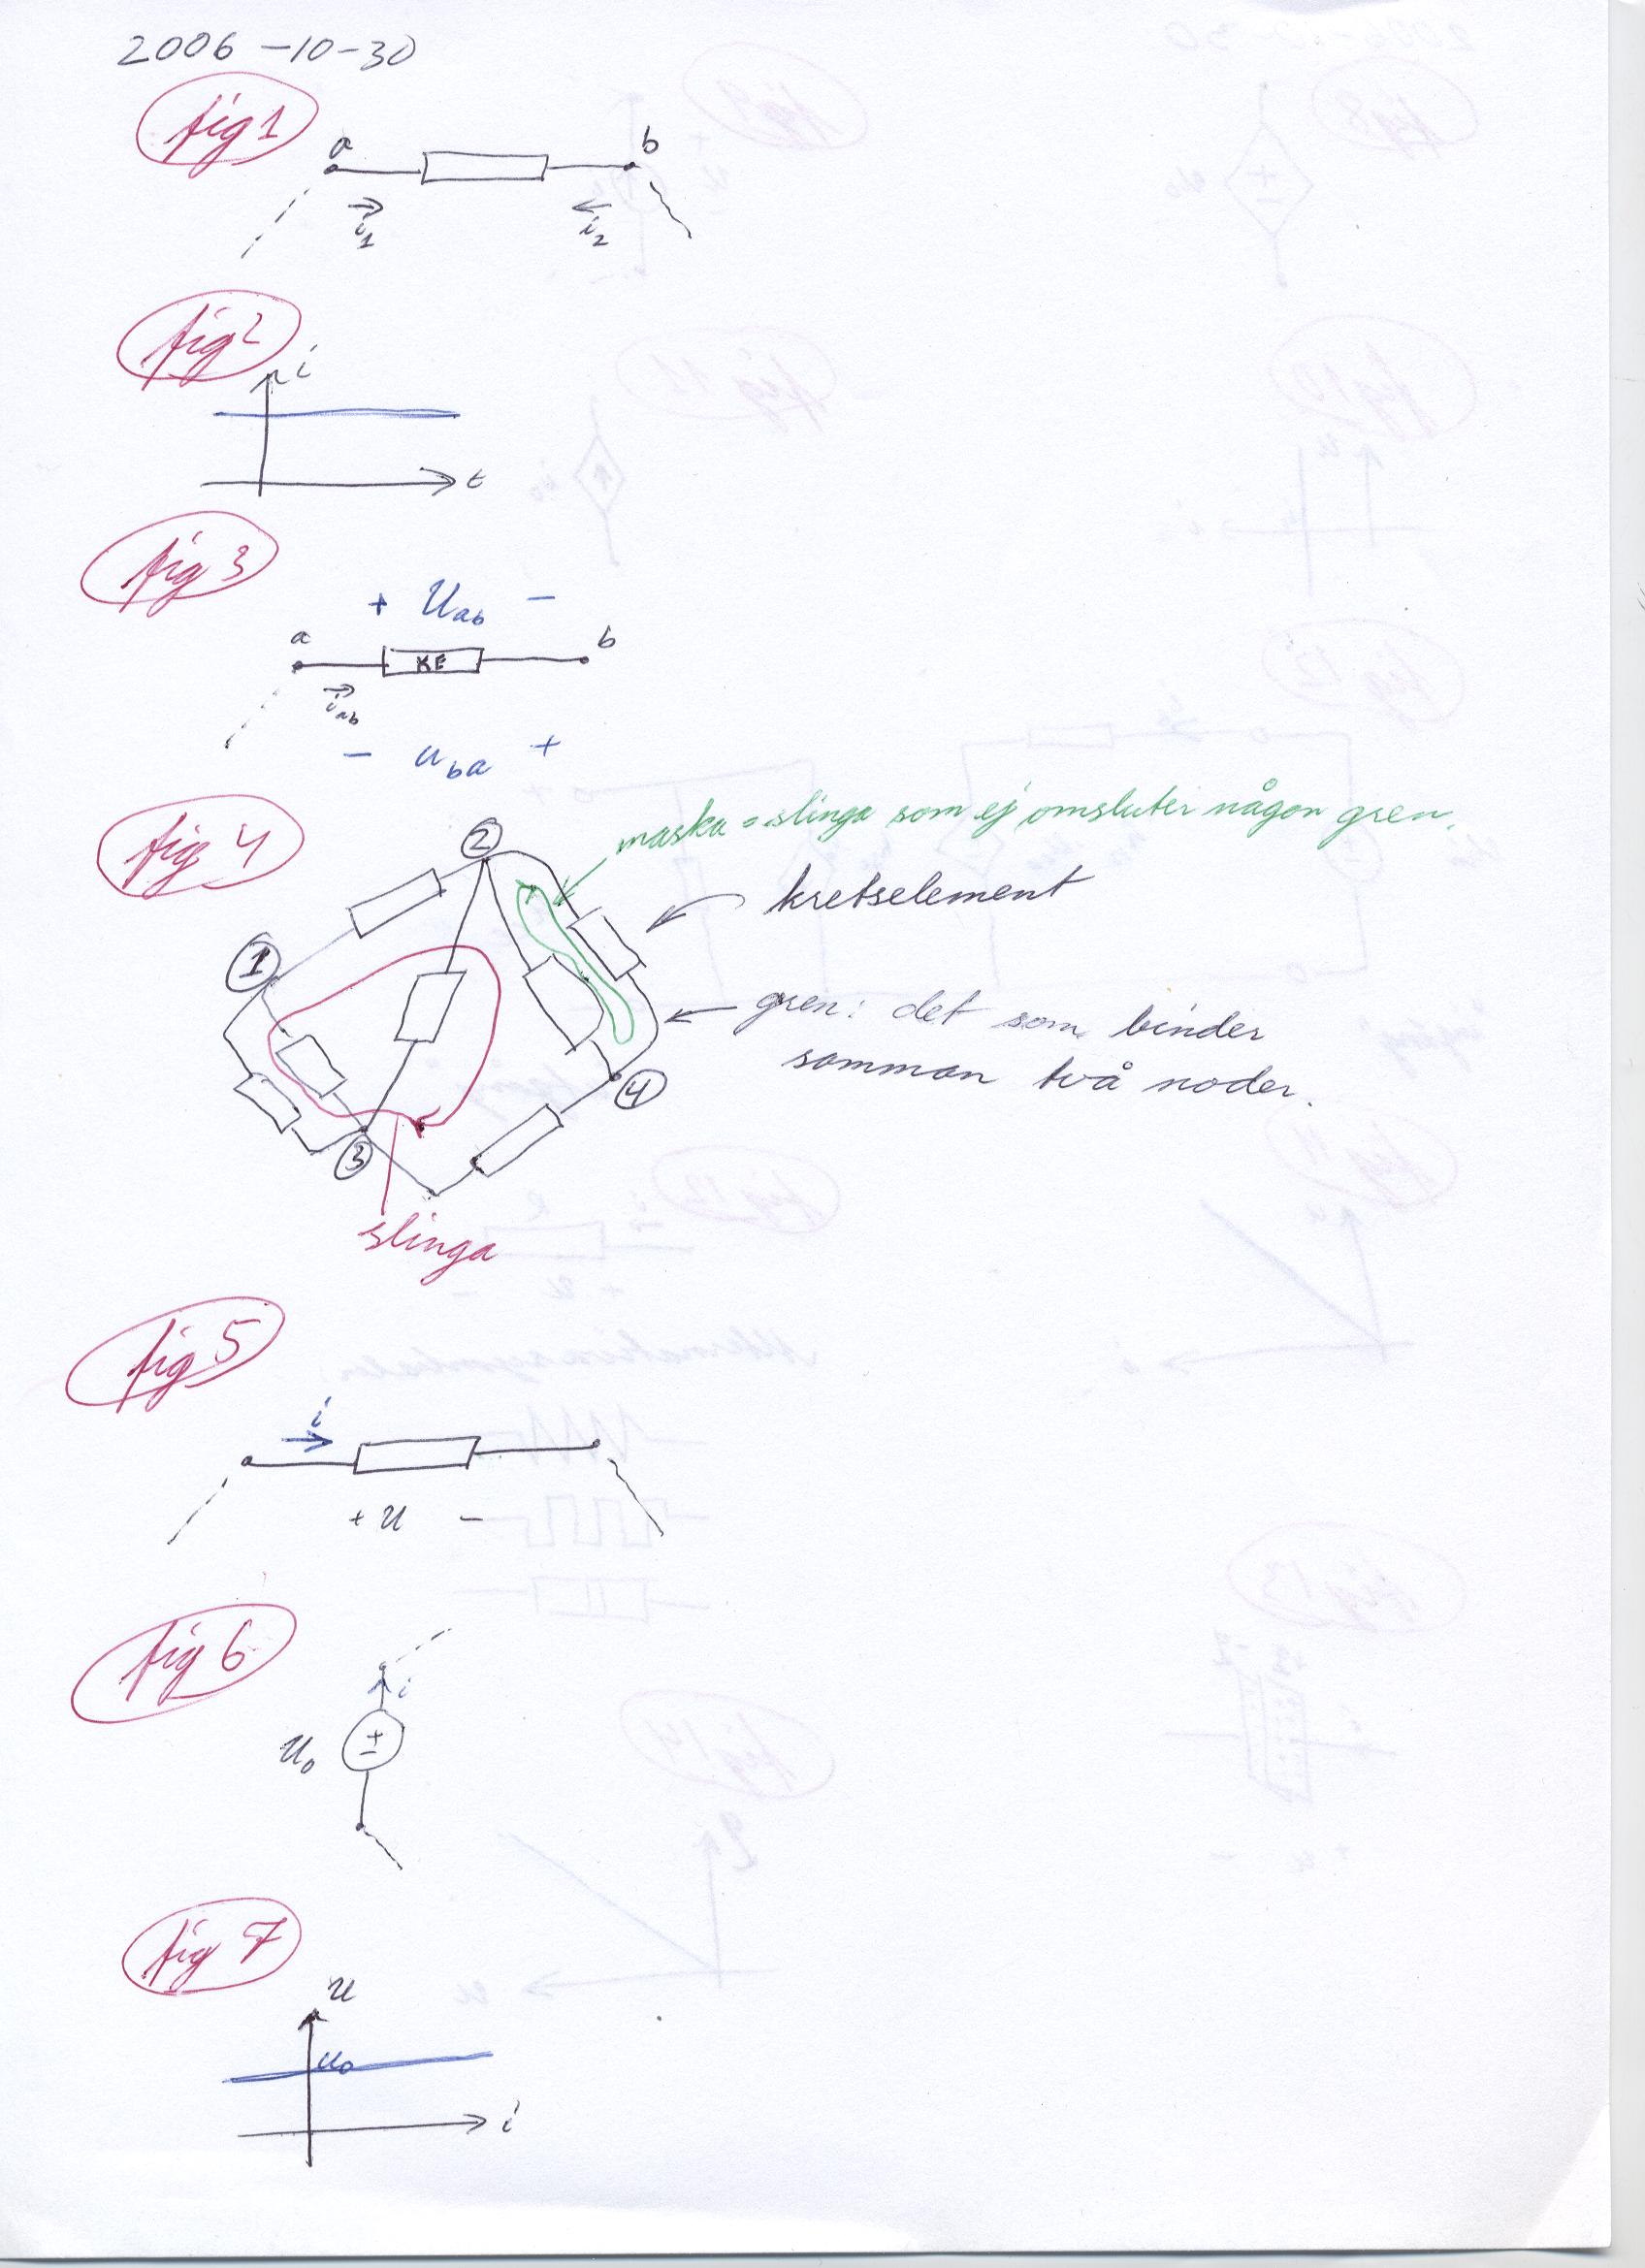 2006-10-30
fig 1
a
b
i1
i2
fig 2
i
t
fig 3
+ Uab -
a
b
KE
iab
- uba +
fig 4
maska = slinga som ej omsluter någon gren.
2
kretselement
1
gren: det som binder
samman två noder.
4
3
slinga
fig 5
i
+ U -
fig 6
i
U0
+
-
fig 7
U
U0
i